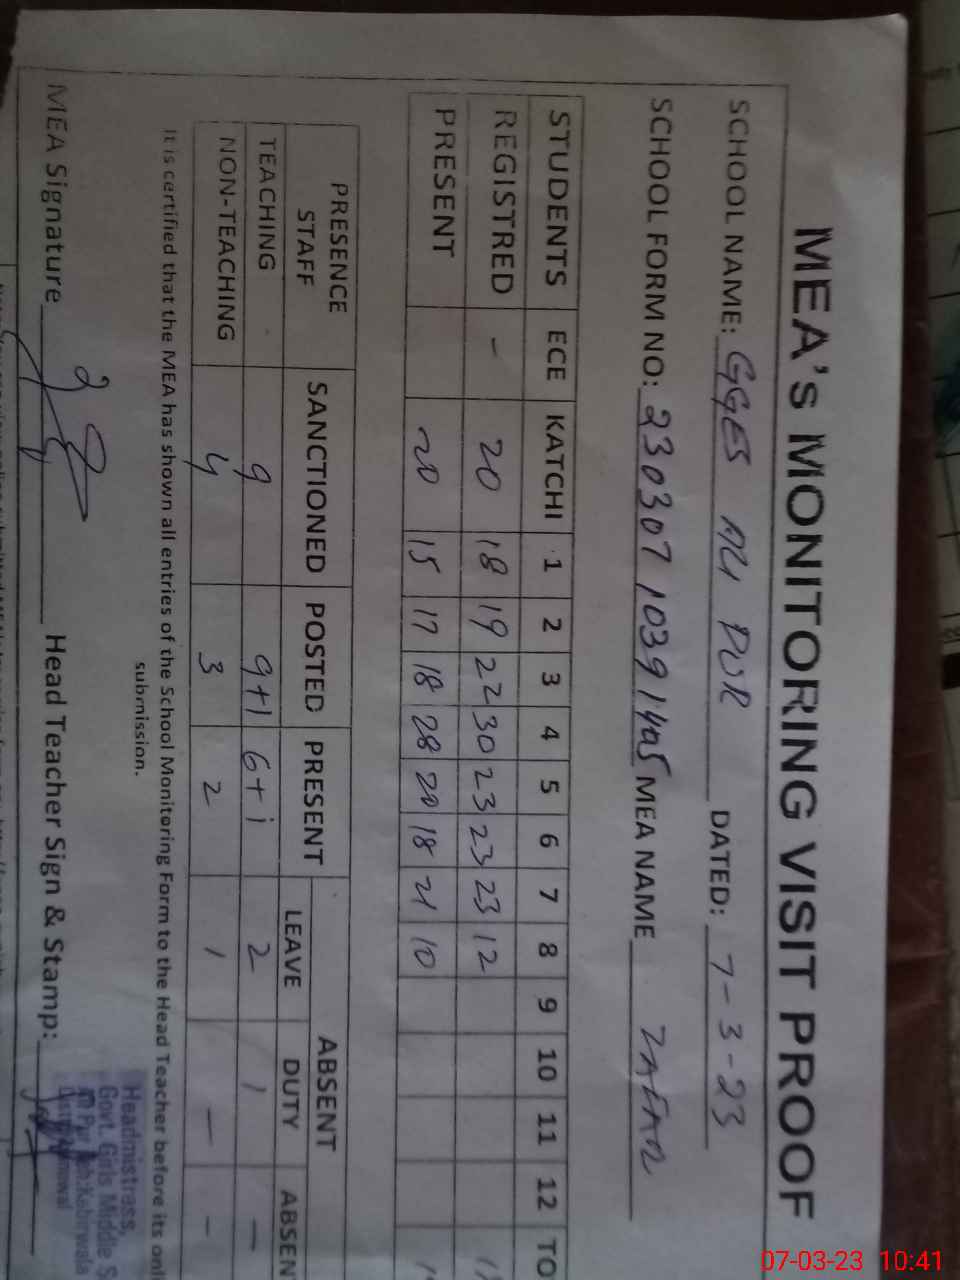 MEA's MONITORING VISIT PROOF
SCHOOL NAME: GGES ALI PUR DATED: 7-3-23
SCHOOL FORM NO: 230307 1039 1405 MEA NAME ZAFAR
STUDENTS ECE KATCHI 1 2 3 4 5 6 7 8 9 10 11 12 TO
REGISTRED - 20 18 19 22 30 23 23 23 12
PRESENT 20 15 17 18 28 20 18 21 10
PRESENCE STAFF SANCTIONED POSTED PRESENT ABSENT
LEAVE DUTY ABSEN
TEACHING 9 9+1 6+1 2 1 -
NON-TEACHING 4 3 2 1 - -
It is certified that the MEA has shown all entries of the School Monitoring Form to the Head Teacher before its onl
submission.
MEA Signature Head Teacher Sign & Stamp:
Headmistrass,
Govt. Girls Middle S
Pur Teh:Kabirwala
07-03-23 10:41